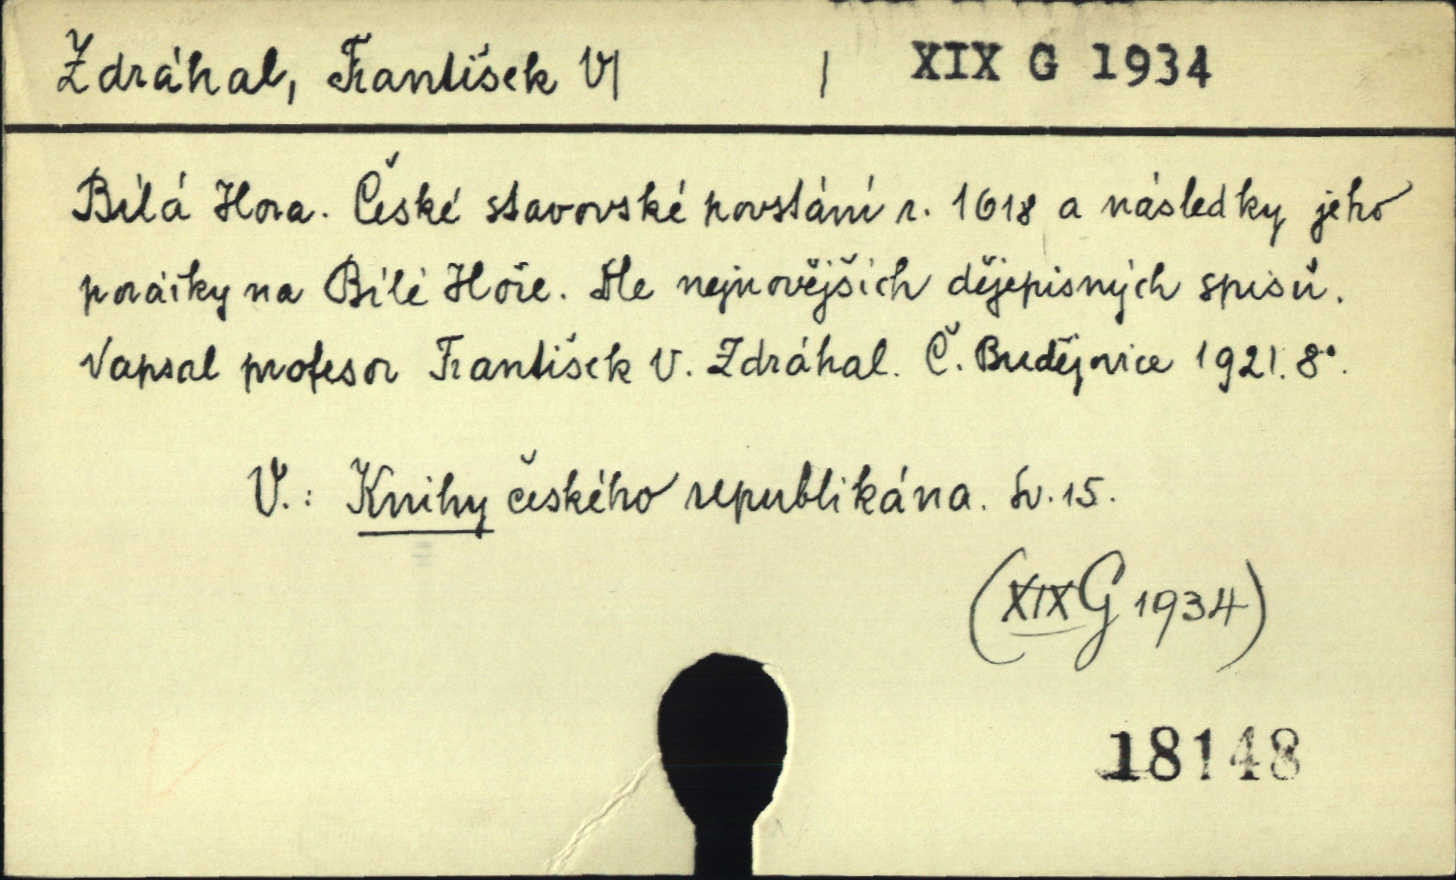 Zdráhal, František V| | XIX G 1934
Bílá Hora. České stavovské povstání r. 1618 a následky jeho
porážky na Bílé Hoře. Dle nejnovějších dějepisných spisů.
Napsal profesor František V. Zdráhal. Č. Budějovice 1921. 8°.
V.: Knihy českého republikána. Sv. 15.
(XIX G 1934)
18148